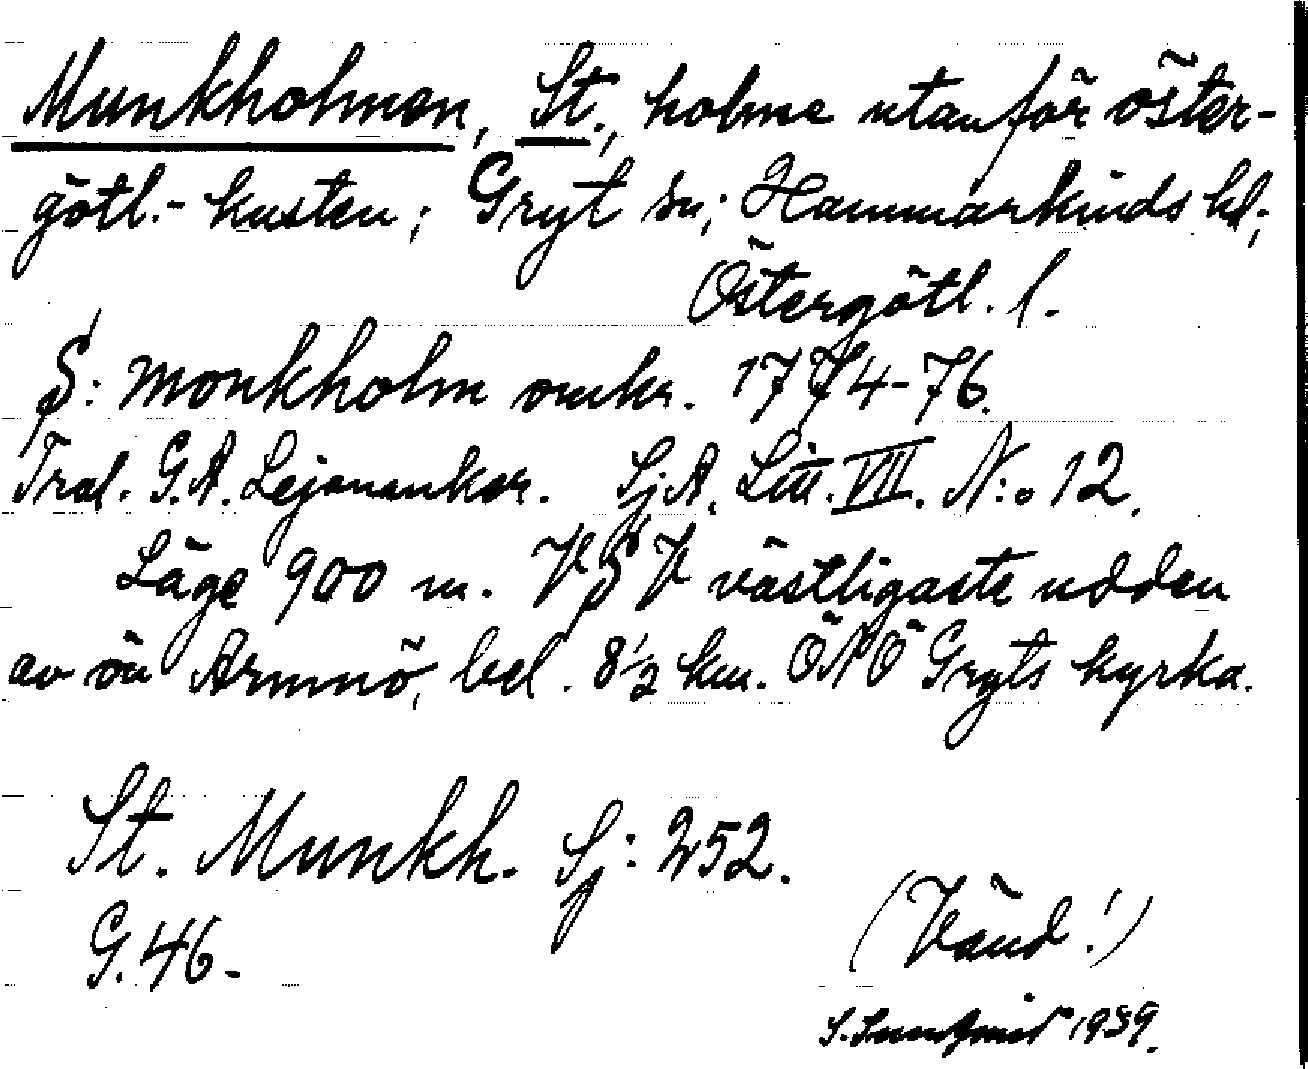 Munkholmen, St., holme utanför öster-
götl.- kusten; Gryt sn; Hammarkinds hd;
Östergötl. l.
S: monkholm omkr. 1774-76.
Tral. G.A. Lejonanker. Sj.A. Litt. VIII. N:o 12.
Läge 900 m. VSV västligaste udden
av ön Armnö, bel. 8 1/2 km. ÖNÖ Gryts kyrka.
St. Munkh. Sj: 252.
G. 46-
(Vänd!)
S. Sundqvist 1939.